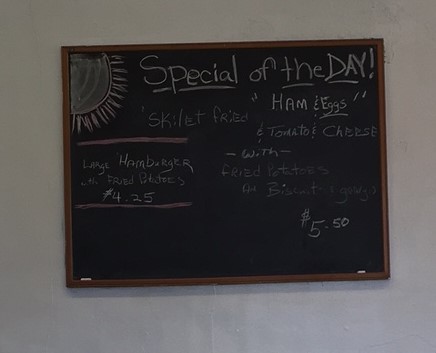 Special of the DAY!
"HAM & Eggs"
'Skilet fried
& TOMATOE CHEESE
- with -
LARGE HAMBURGER
with FRIED Potatoes
$4.25
FRIED Potatoes
Biscuits & gravy
$5.50